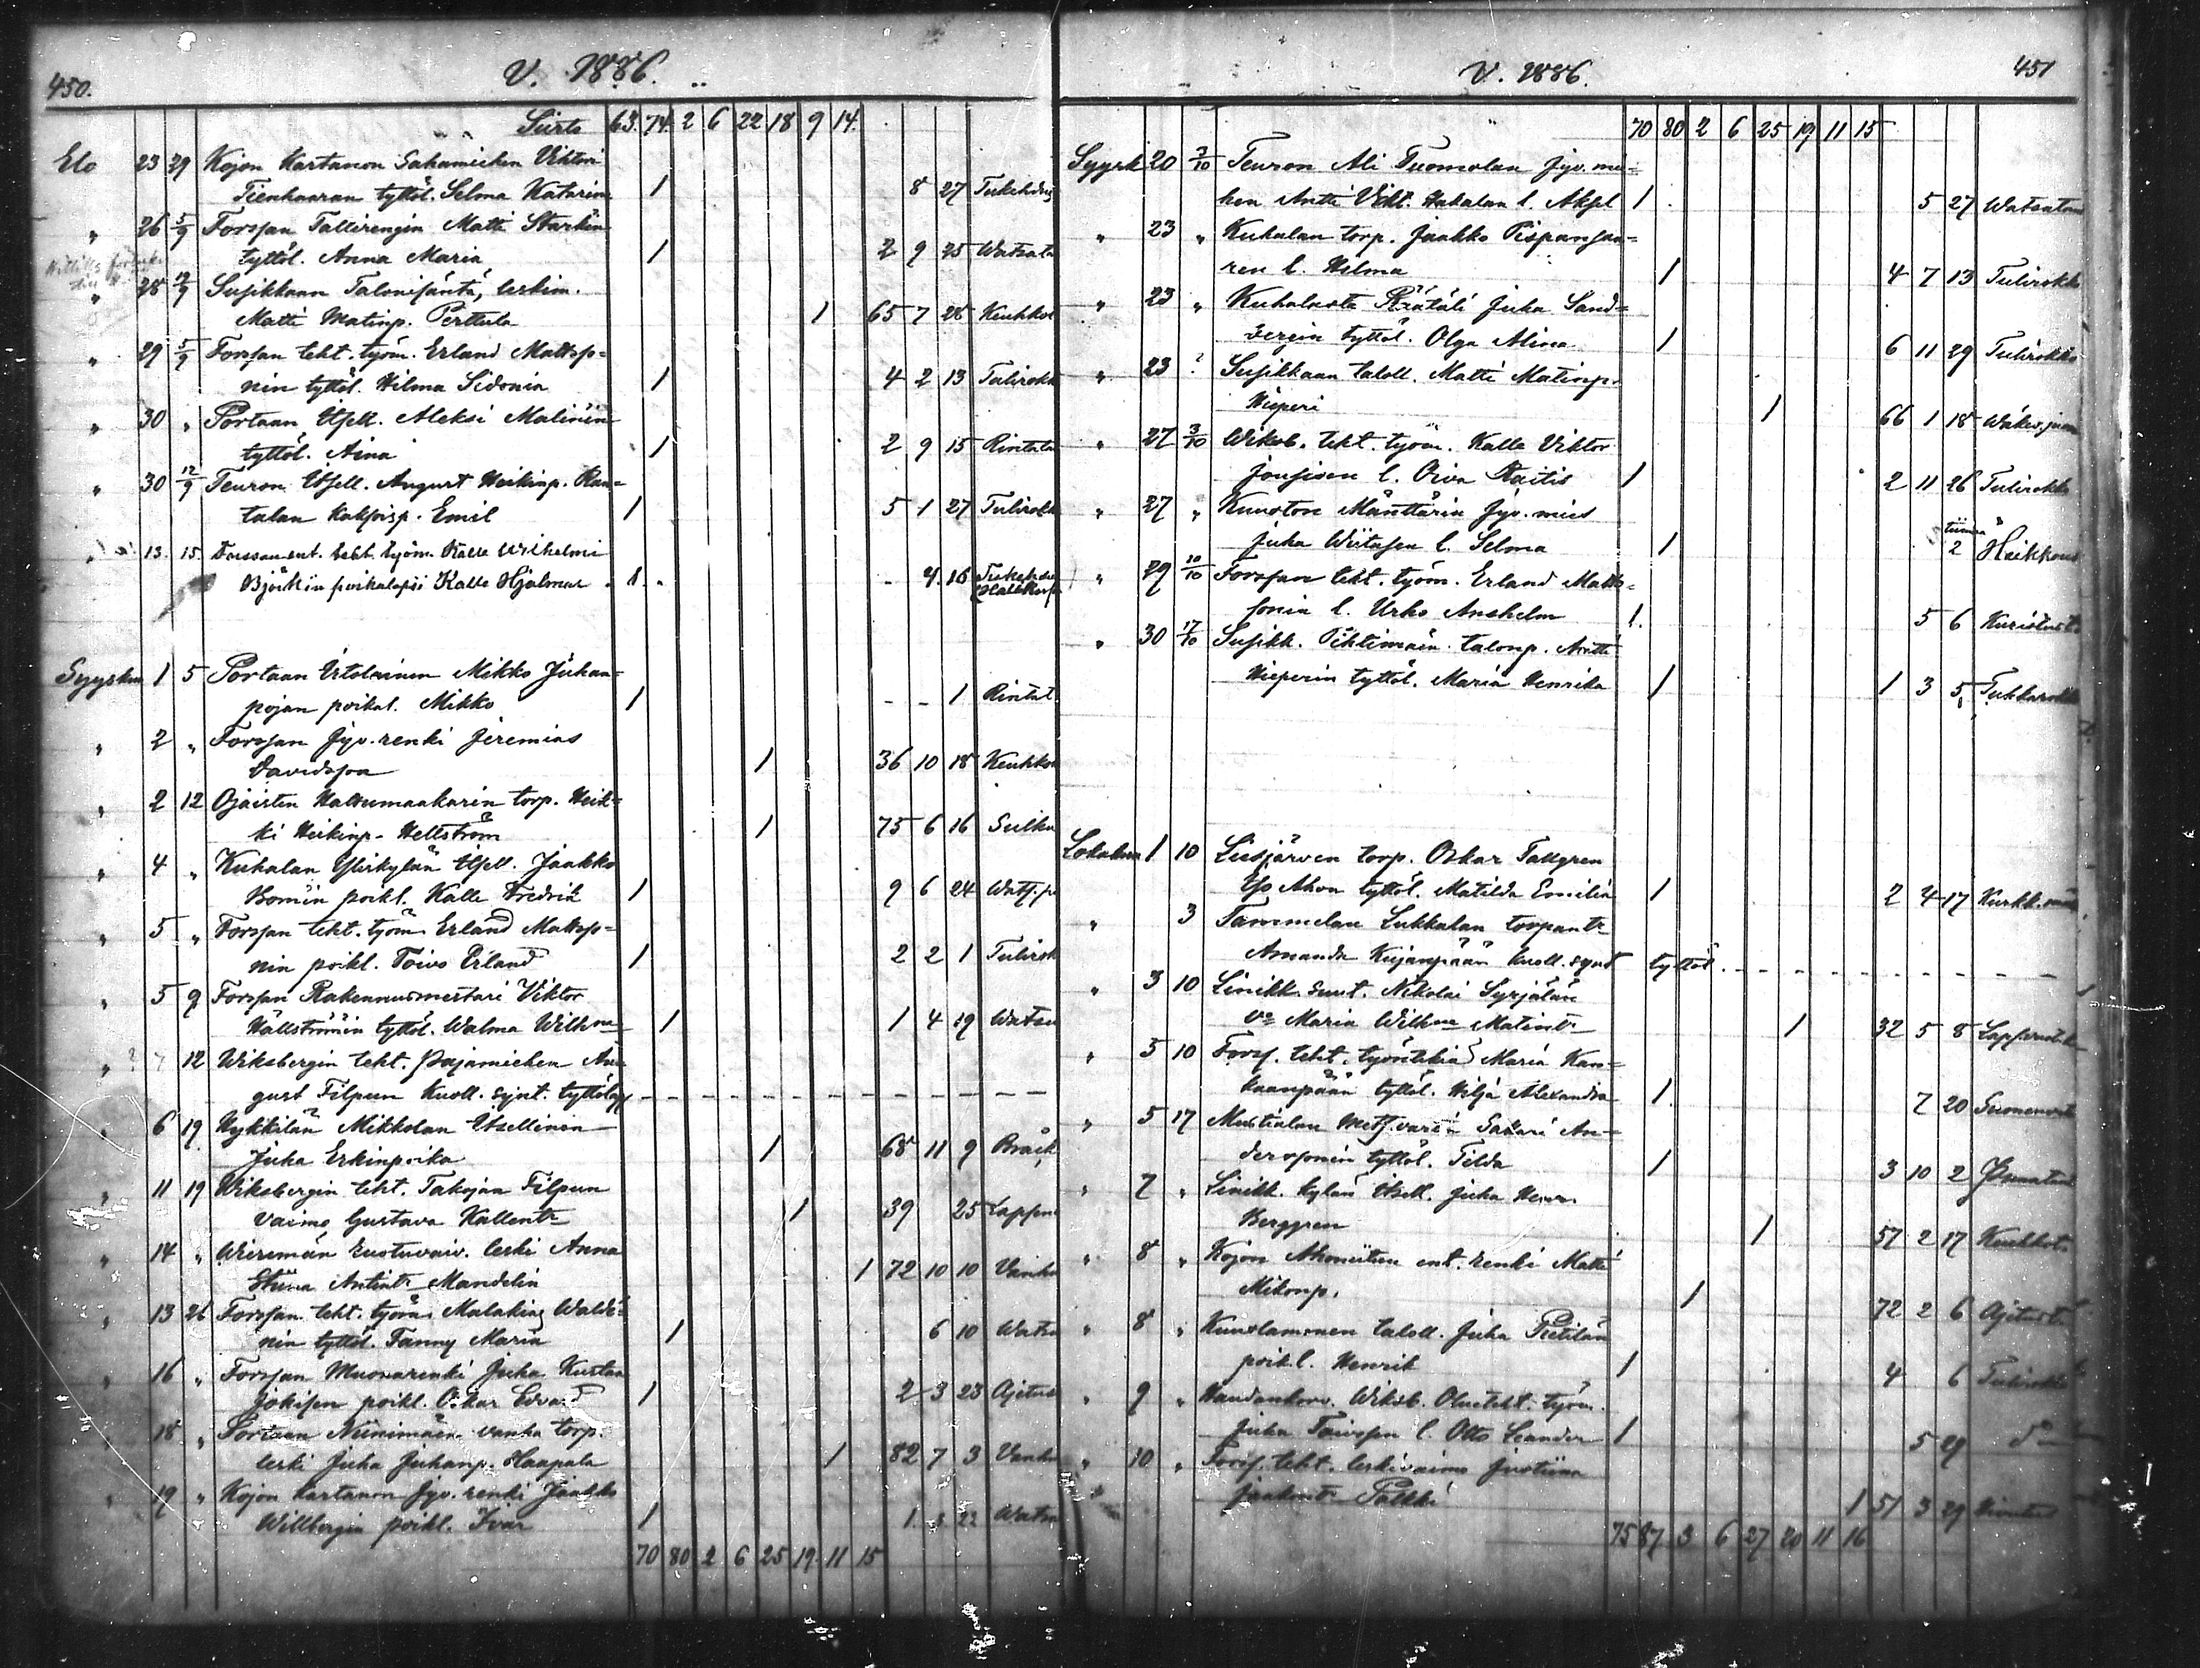 450.
V. 1886.
Siirto 63. 74. 2 6 22 18 9 14.
Elo 23 29 Kojon Kartanon Sahamiehen Viktori
Tienhaaran tyttöl. Selma Katarina 1 8 27
" 26 5/9 Forssan Tallirengin Matti Starkin
tyttöl. Anna Maria 1 2 9 25 Watsata
" 28 12/9 Susikkaan Talonisäntä, leskim.
Matti Matinp. Perttula 1 65 7 28 Keuhkot
" 29 5/9 Forssan teht. työm. Erland Mattsso=
nin tyttöl. Hilma Sidonia 1 4 2 13 Tulirokk
" 30 " Portaan Itsell. Aleksi Malinin
tyttöl. Aina 1 2 9 15 Rintata
" 30 12/9 Teuron Itsell. August Heikinp. Ran=
talan kaksoisp. Emil 1 5 1 27 Tulirokk
" 13. 15. Forssan ent. teht. työm. Kalle Wilhelmi
Björkin poikalapsi Kalle Hjalmar 1. 4. 16
Syyskuu 1 5 Portaan Irtolainen Mikko Juhan=
pojan poikal. Mikko 1 - - 1 Rintat.
" 2 " Forssan Jyv. renki Jeremias
Davidsson 1 36 10 18 Keuhkot
" 2 12 Ojäisten Haltumaakarin torp. Heik=
ki Heikinp. Hellström 1 75 6 16
" 4 " Kuhalan Ylikylän Itsell. Jaakko
Bomin poikl. Kalle Fredrik 1 9 6 24
" 5 " Forssan teht. työm. Erland Mattsso=
nin poikl. Toivo Erland 1 2 2 1 Tulirok
" 5 9 Forssan Rakennusmestari Viktor
Hällströmin tyttöl. Walma Wilhna 1 1 4 19 Watsa
" 12 Wiksbergin teht. Pajamiehen Au=
gust Filpun Kuoll. synt. tyttölaps - - - - - - - - - - - -
" 6 19 Hykkilän Mikkolan Itsellinen
Juha Erkinpoika 1 68 11 9 Bråck
" 11 19 Wiksbergin teht. Takojan Filpun
Vaimo Gustava Kallentr 1 39 25 Lapsen
" 14 " leski Anna
Stiina Antintr Mandelin 1 72 10 10 Vanhu
" 13 26 Forssan teht. työm. Malakias Walde=
nin tyttöl. Fanny Maria 1 6 10 Watsa
" 16 " Forssan Muonarenki Juha Kustaa
Jokisen poikl. Oskar Edvard 1 2 3 23 Ajetus
" 18 " Portaan Niinimäen vanha torp.
leski Juha Juhanp. Haapala 1 82 7 3 Vanhu
" 19 " Kojon Kartanon Jyv. renki Jaakko
Willbergin poikl. Ivar 1 1. 3. 22 Watsa
70 80 2 6 25 19 11 15
V. 1886.
451
70 80 2 6 25 19 11 15
Syysk 20 3/10 Teuron Ali Tuomolan Jyv. mie=
hen Antti Vikt. Hakalan l. Aksel 1 5 27
" 23 " Kuhalan torp. Jaakko
l. Hilma 1 4 7 13 Tulirokk
" 23 " Kuhalasta Räätäli Juha Sand=
bergin tyttöl. Olga Alina 1 6 11 29 Tulirokko
" 23 ? Susikkaan taloll. Matti Matinp.
Hieperi 1 66 1 18
" 27 3/10 Wiksb. teht. työm. Kalle Viktor
l. Oiva 1 2 11 26 Tulirokko
" 27 " Kuuston Mänttärin Jyv. mies
Juha l. Selma 1 tiimaa 2 Heikkous
" 29 10/10 Forssan teht. työm. Erland Matts=
sonin l. Urho Anshelm 1. 5 6
" 30 17/10 Susikk. Pihtimäen talonp. Antti
Hieperin tyttöl. Maria Henrika 1 1 3 5 Tuhkarokk
Lokakuu 1 10 Liesjärven torp. Oskar Tallgren
Ahon tyttöl. Matilda Emilia 1 2 4 17
" 3 Tammelan Lukkalan torpantr
Amanda Kujanpään kuoll. synt tyttöl. - - - - - - - - - - - -
" 3 10 Linikk. Suut. Nikolai Syrjälän
Vo Maria Wilhna Matintr 1 32 5 8
" 5 10 Forss. teht. työntekiä Maria Kan=
kaanpään tyttöl. Hilja Alexandra 1 7 20
" 5 17 Mustialan Metsvari Sakari An=
derssonin tyttöl. Tilda 1 3 10 2
" 7 " Linikk. kylän Itsell. Juha Henr.
Berggren 1 57 2 17 Keuhkot.
" 8 " Kojon ent. renki Matti
Mikonp. 1 72 2 6
" 8 " Kuuslammen taloll. Juha Pietilän
poik.l. Henrik 1 4 6 Tulirokko
" 9 " Haudankorv. Wiksb. Oluteht. työm.
Juha Toivosen l. Otto Leander 1 5 29 do
" 10 " Forss. teht. leskivaimo Justiina
Jaakontr Palkki 1 51 3 29
75 87 3 6 27 20 11 16